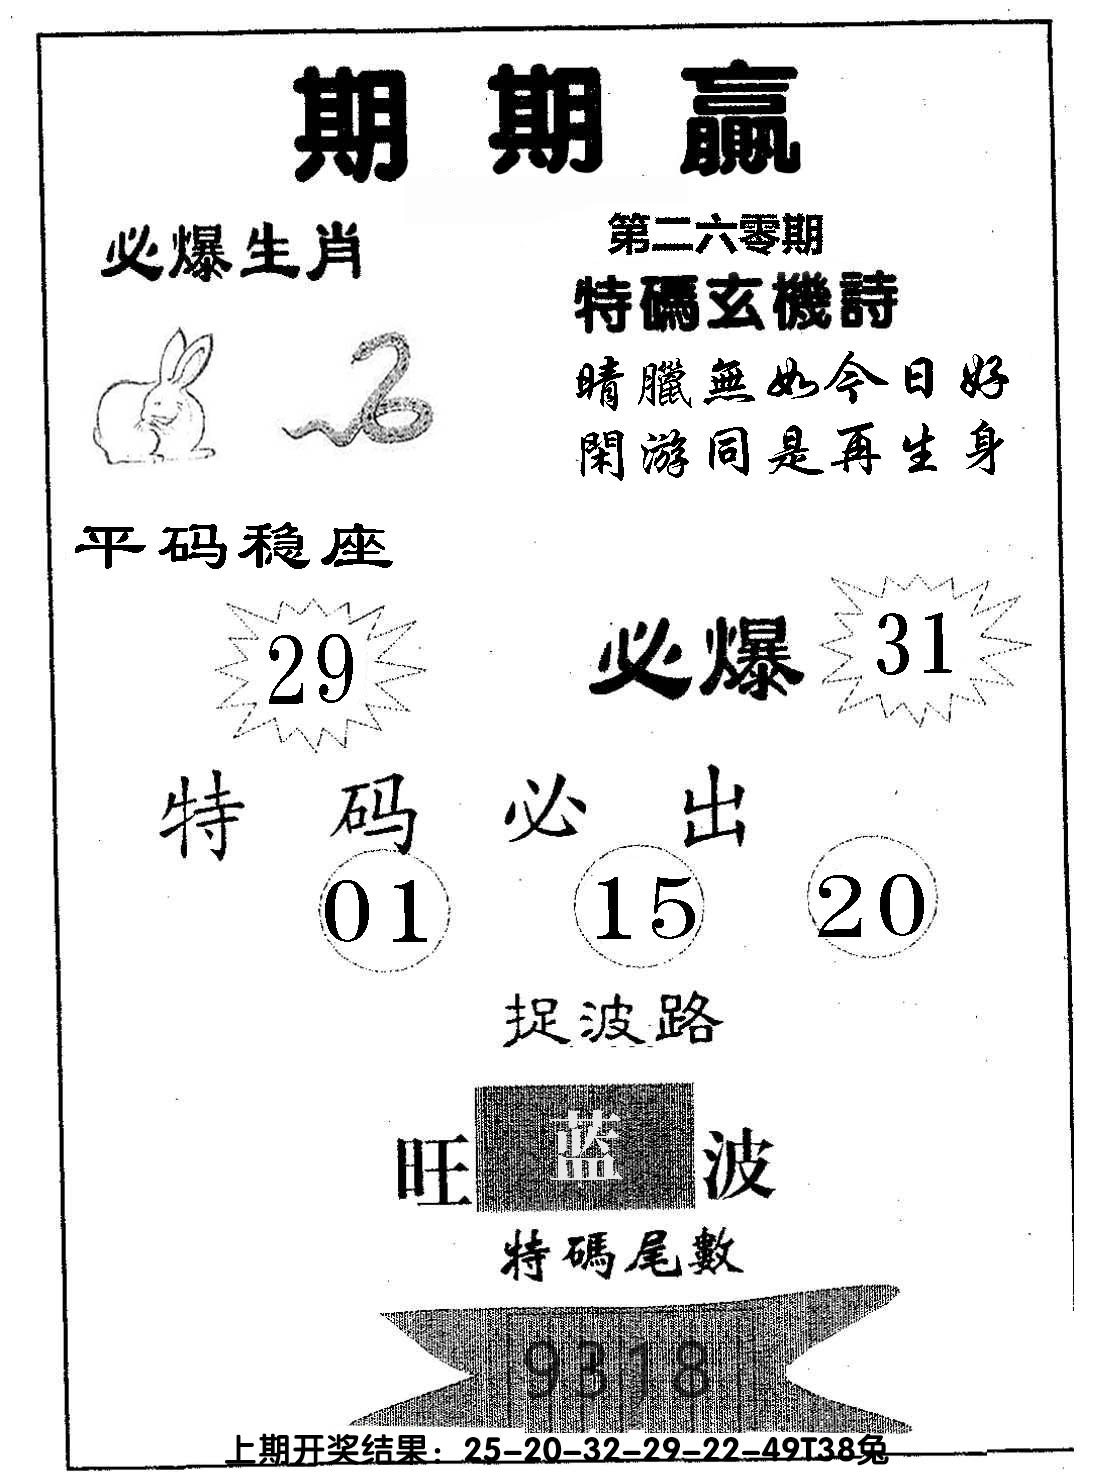 期期贏
必爆生肖
第二六零期
特碼玄機詩
晴臘無如今日好
閑游同是再生身
平码稳座
29
必爆 31
特码必出
01 15 20
捉波路
旺蓝波
特碼尾數
9318
上期开奖结果：25-20-32-29-22-49T38兔